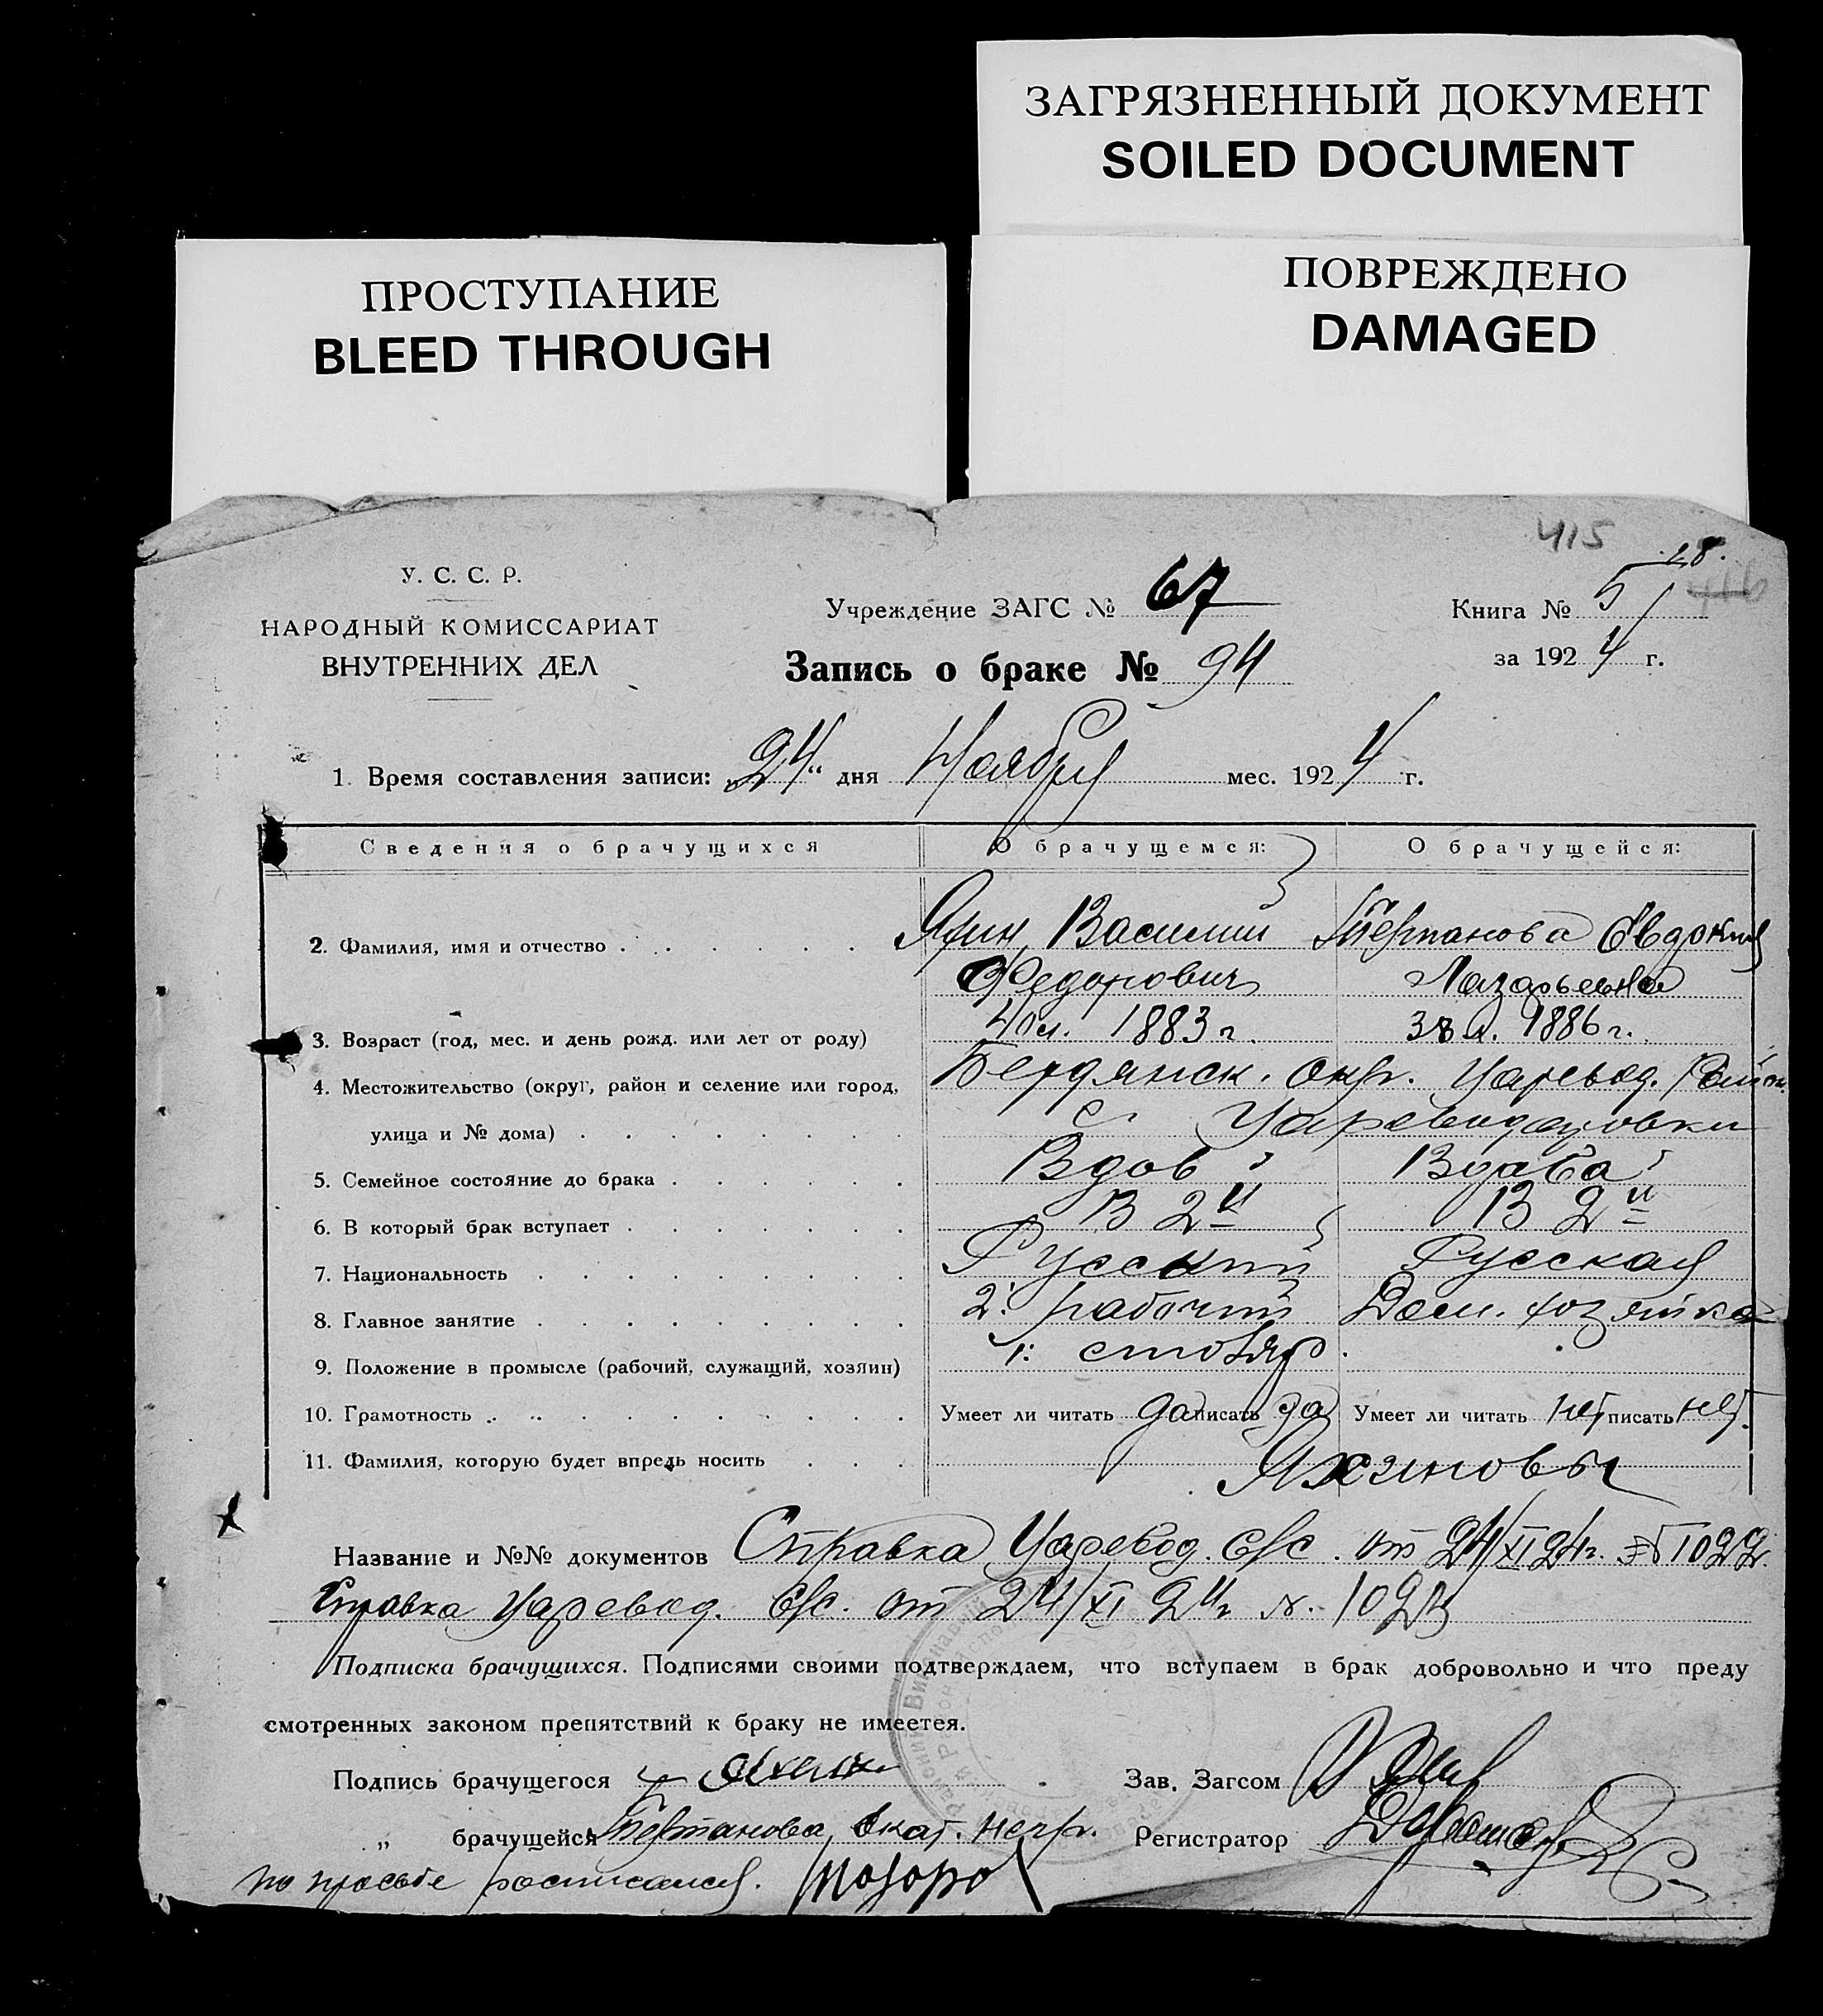 ЗАГРЯЗНЕННЫЙ ДОКУМЕНТ
SOILED DOCUMENT
ПРОСТУПАНИЕ
BLEED THROUGH
ПОВРЕЖДЕНО
DAMAGED
415
28.
У. С. С. Р.
НАРОДНЫЙ КОМИССАРИАТ
ВНУТРЕННИХ ДЕЛ
Учреждение ЗАГС № 67
Книга № 5
Запись о браке № 94
за 1924 г.
1. Время составления записи: „24“ дня Ноября мес. 1924 г.
Сведения о брачущихся О брачущемся: О брачущейся:
2. Фамилия, имя и отчество Яхин Василий Евдокия
Федорович Лазарьевна
3. Возраст (год, мес. и день рожд. или лет от роду) 40 л. 1883 г. 38 л. 1886 г.
4. Местожительство (округ, район и селение или город, Бердянск. окр. Царевод. Район.
улица и № дома) с Цареводаровки
5. Семейное состояние до брака Вдов Вдова
6. В который брак вступает В 2й В 2й
7. Национальность Русский Русская
8. Главное занятие 2: рабочий Дом. хозяйка
9. Положение в промысле (рабочий, служащий, хозяин) 1: столяр
10. Грамотность Умеет ли читать да писать да Умеет ли читать нет писать нет.
11. Фамилия, которую будет впредь носить Яхиновы
Название и №№ документов Справка Царевод. с/с. от 24/XI 24 г. № 1022
Справка Царевод. с/с. от 24/XI 24 г. № 1023
Подписка брачущихся. Подписями своими подтверждаем, что вступаем в брак добровольно и что преду
смотренных законом препятствий к браку не имеется.
Подпись брачущегося Яхин Зав. Загсом
„ брачущейся негр. Регистратор
по просьбе расписался.